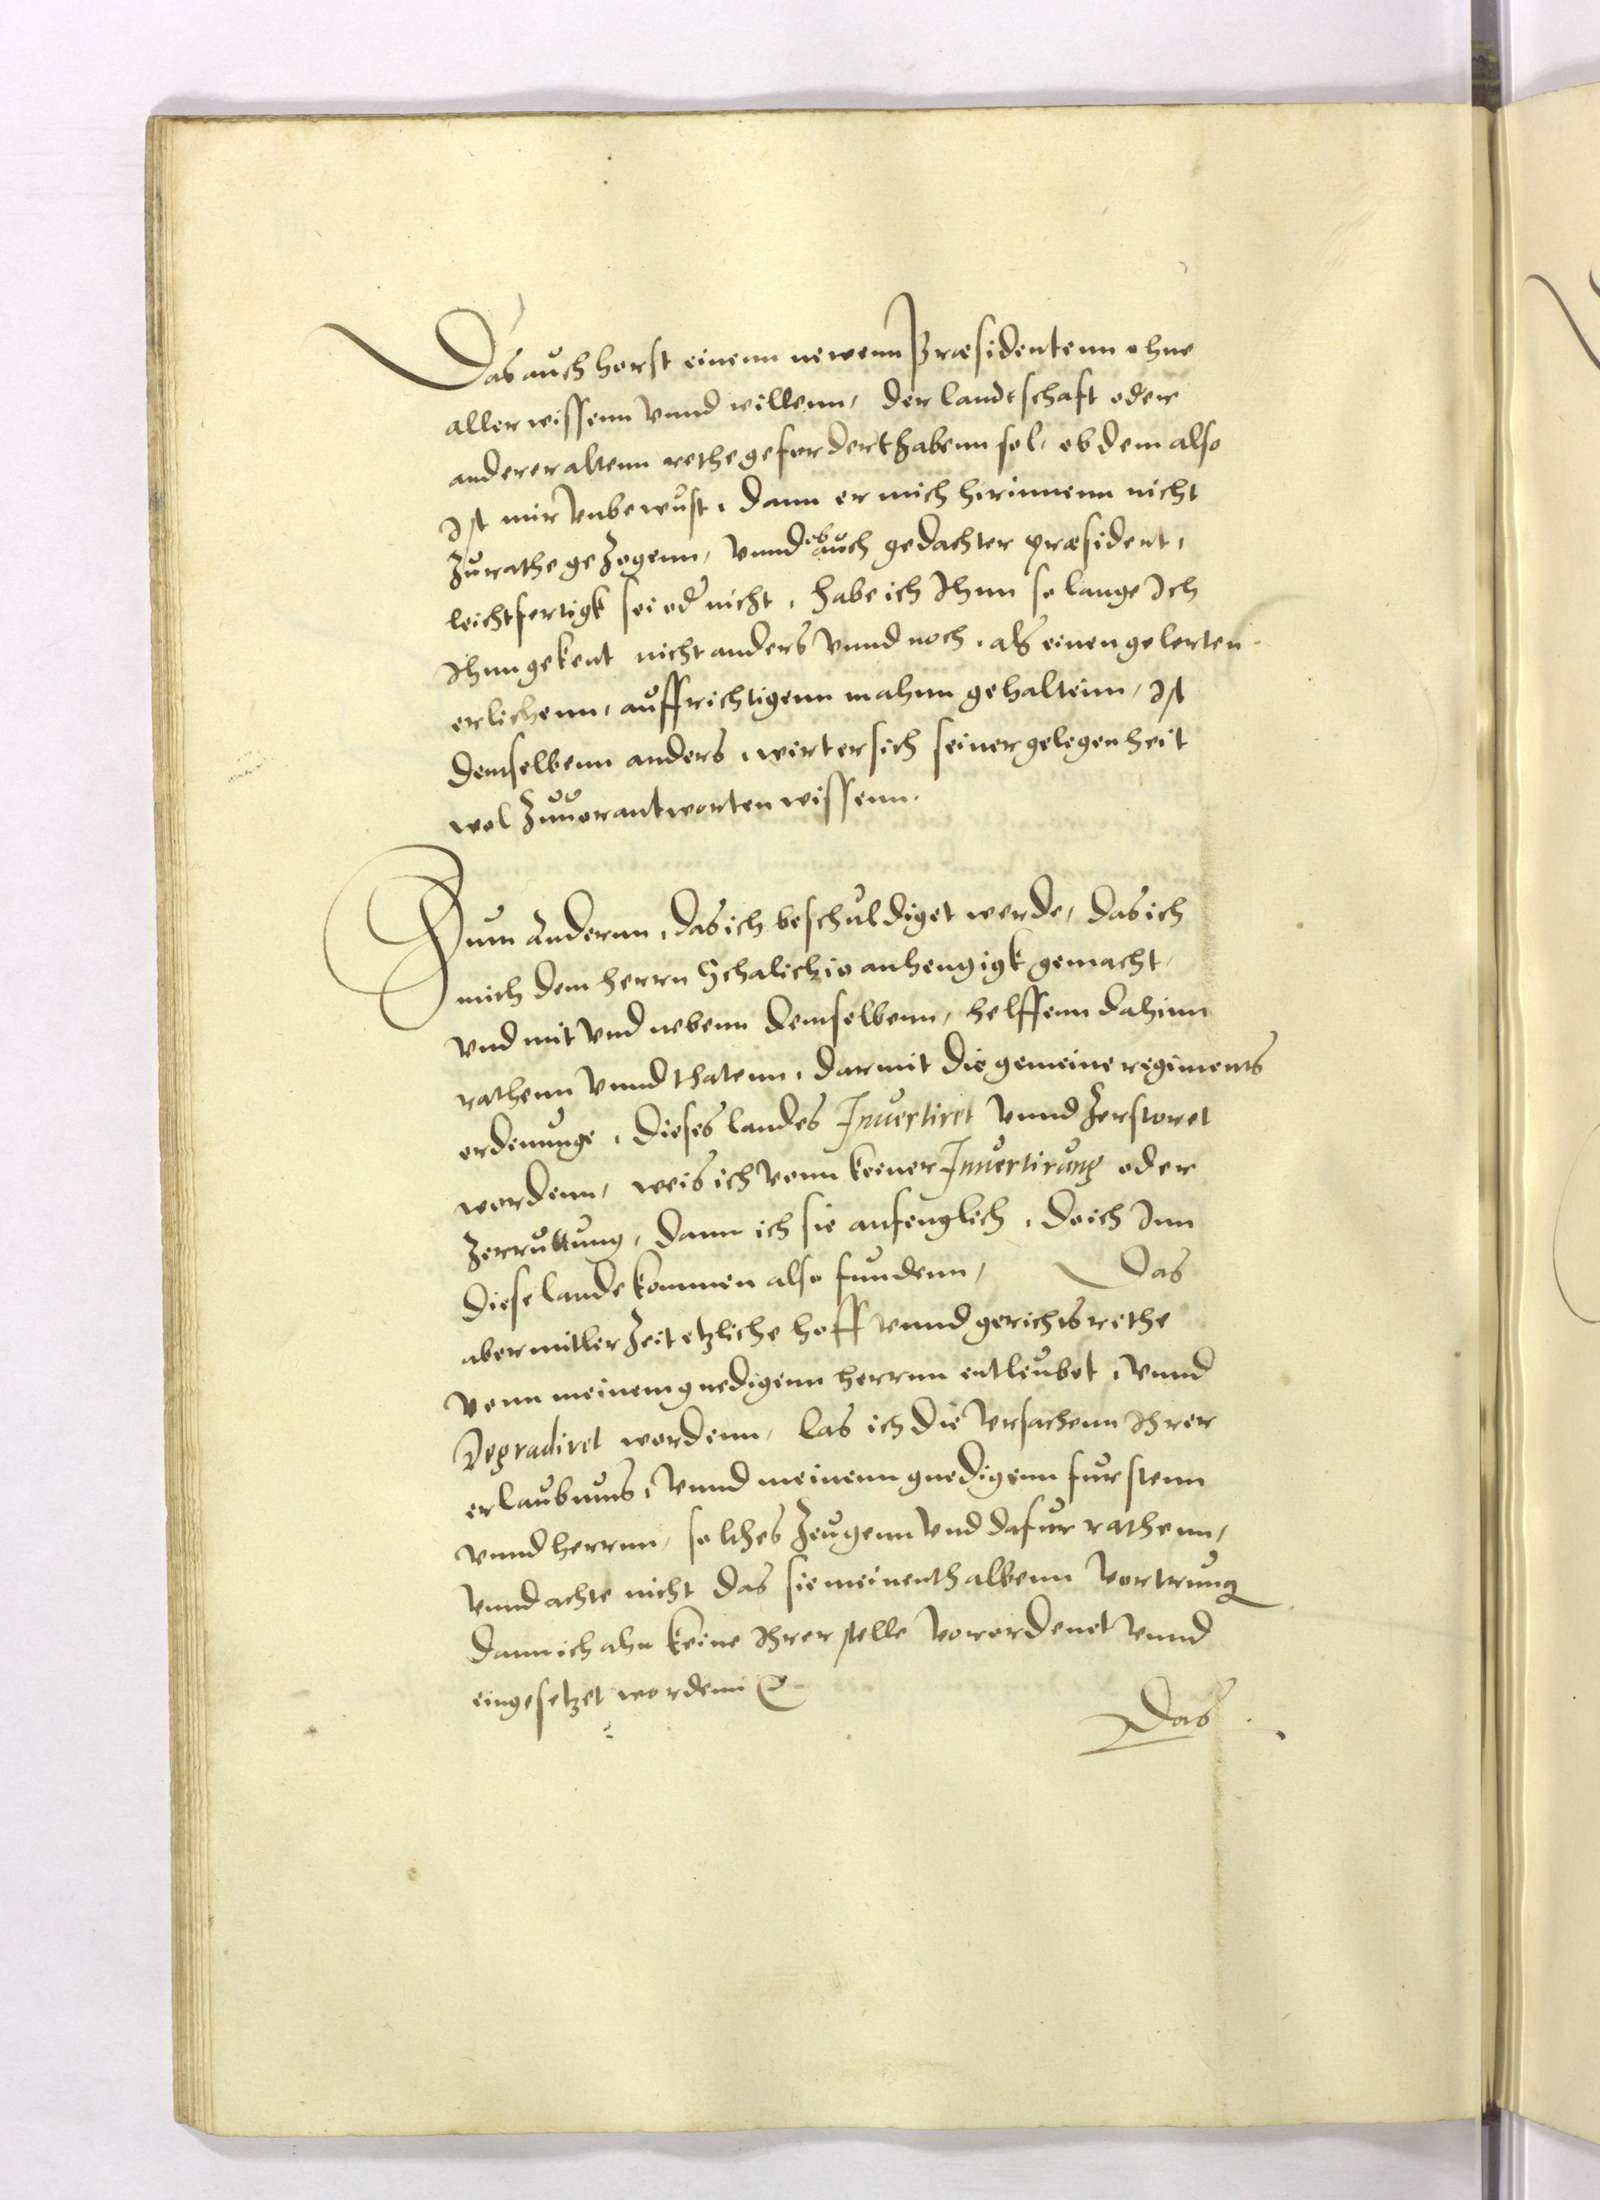 Das auch horst einenn newenn Præsidentenn ohne
aller wissenn vnnd willenn, der landtschaft oder
anderer altenn rethe gefordert habenn sol, ob dem also
Ist mir vnbewust, dann er mich hirinnenn nicht
zu rathe gezogenn, vnnd ob auch gedachter præsident,
leichtfertigk sei od nicht, habe ich Ihnn so lange Ich
Ihnn gekent nicht anders vnnd noch, als einen gelerten
erlichenn, auffrichtigenn mahnn gehaltenn, Ist
demselbenn anders, wirt er sich seiner gelegenheit
wol zuuorantworten wissenn.
Zum Andernn, das ich beschuldiget werde, das ich
mich dem herrn Schalichio anhengigk gemacht,
vnd mit vnd nebenn demselbenn, helffenn dahinn
rathenn vnnd thatenn, darmit die gemeine regiments
ordenunge, dieses landes Inuertiret vnnd zerstoret
wordenn, weis ich vonn keiner Inuertirung oder
zerruttung, dann ich sie anfenglich, do ich Inn
diese lande kommen also fundenn, Das
aber mitler zeit etzliche hoff vnnd gerichts rethe
vonn meinem gnedigenn herrnn entleubet, vnnd
Degradiret wordenn, las ich die vrsachenn Ihrer
erlaubnus, vnnd meinenn gnedigenn furstenn
vnnd herrnn, solches zeugenn vnd dafur rathenn,
vnnd achte nicht das sie meinenthalbenn vortrung
dann ich ahn keine Ihrer stelle vorordenet vnnd
eingesetzet wordenn
Das